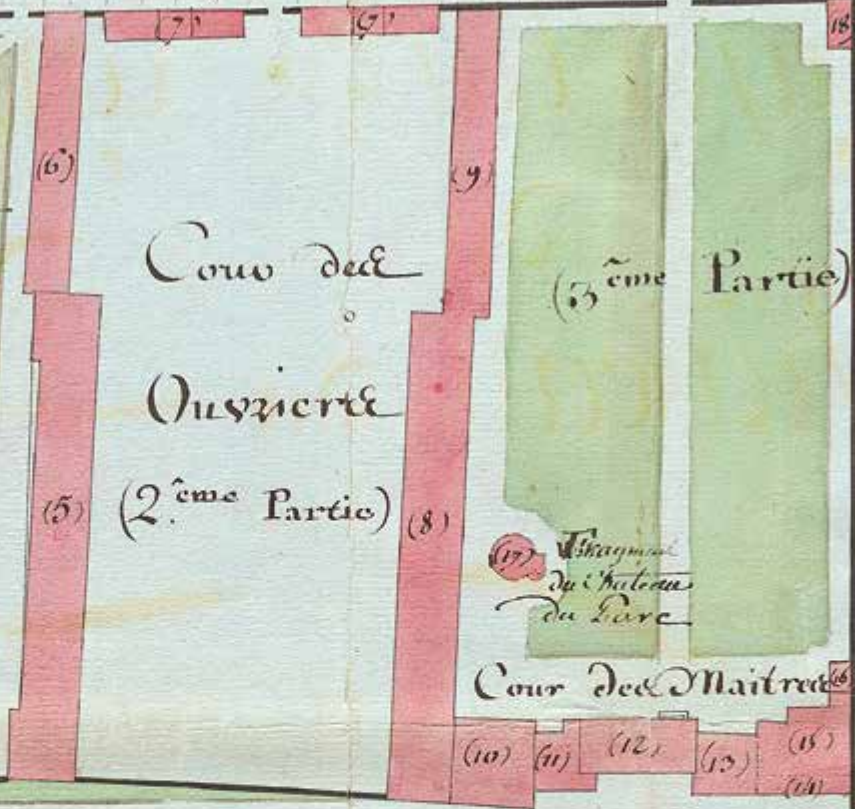 (7)
(7)
18
(6)
(9)
Cour des
(3.ême Partie)
Ouvriers
(2.ême Partie)
(5)
(8)
(17)
Fragment
du Chateau
du Parc
Cour des Maitres
(16)
(10)
(11)
(12)
(13)
(15)
(14)